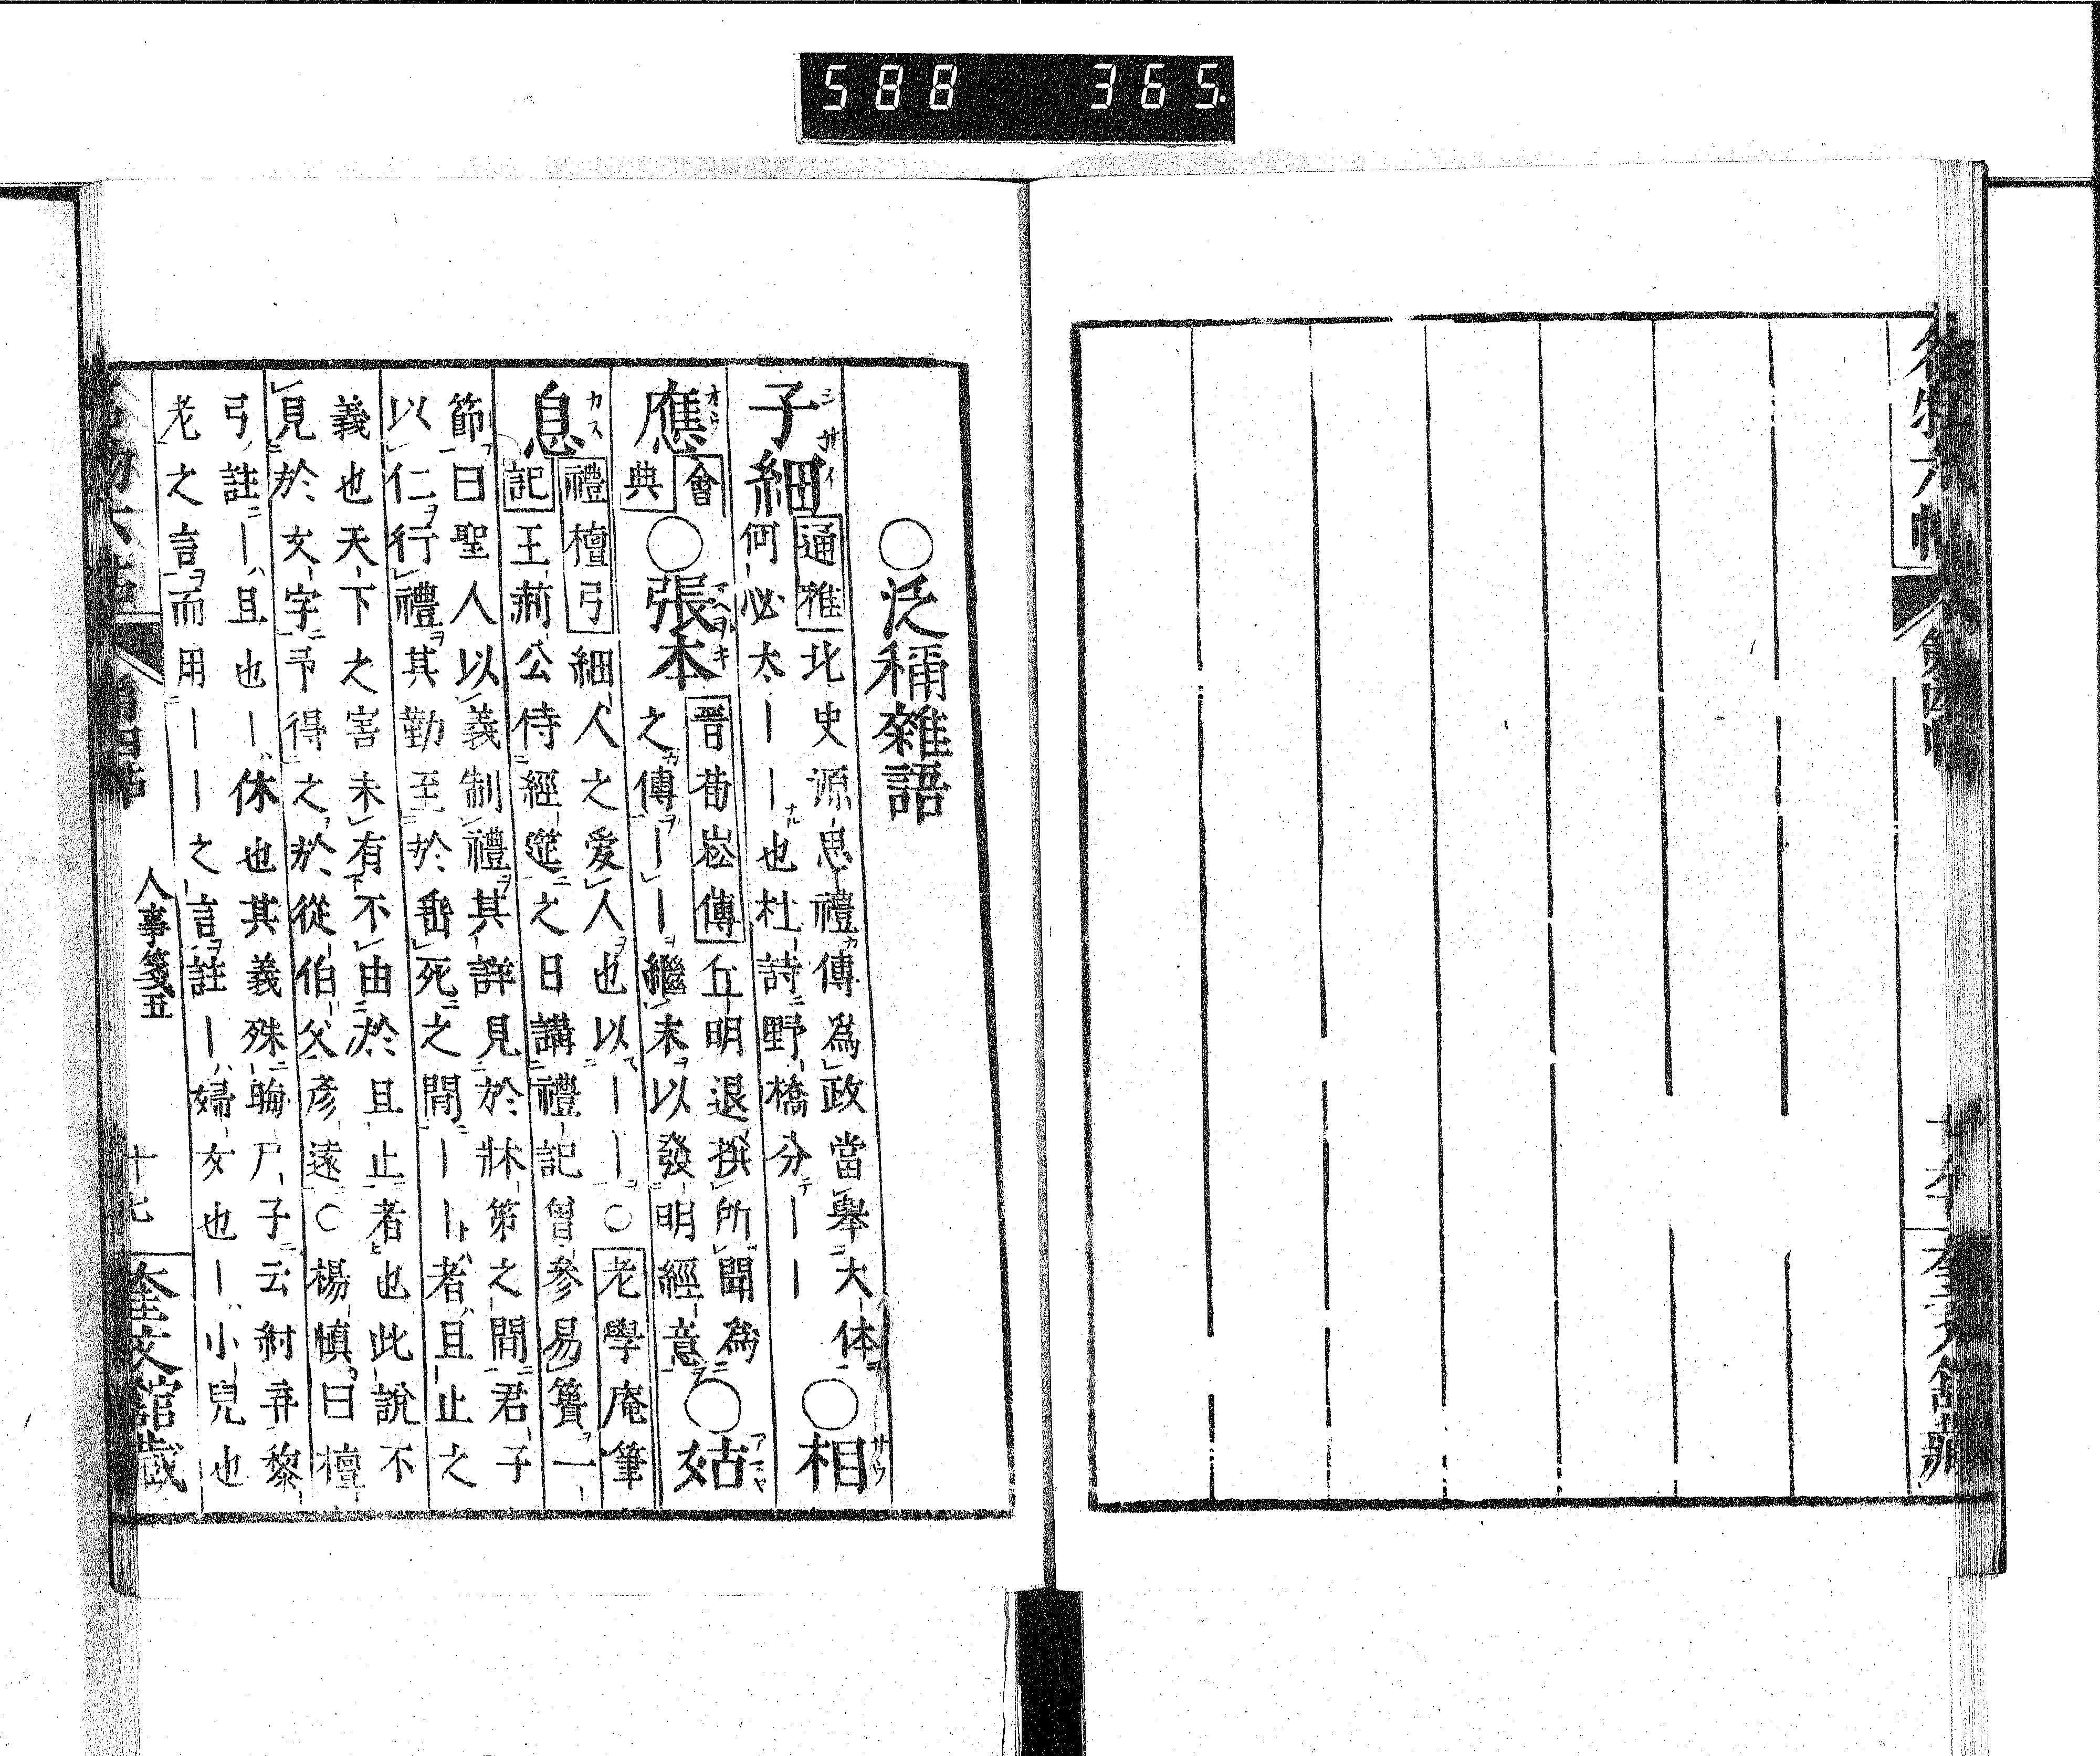 588 365.
○泛稱雜語
子細 通雅 北史源思禮傳爲政當擧大体
何必太｜｜也杜詩野橋分｜｜
○相
應 會典
○張本 晉荀崧傳 丘明退撰所聞爲
之傳｜｜繼末以發明經意
○姑
息 禮檀弓 細人之愛人也以｜｜○老學庵筆
記 王荊公侍經筵之日講禮記曾參易簀一
節曰聖人以義制禮其詳見於牀第之間君子
以仁行禮其勤至於垂死之間｜｜者且止之
義也天下之害未有不由於且止者也此說不
見於文字予得之於從伯父彥遠○楊愼曰檀
弓註｜且也｜休也其義殊晦尸子云紂弃黎
老之言而用｜｜之言註｜婦女也｜小兒也
第四帖
人事箋五
十七
奎文館藏